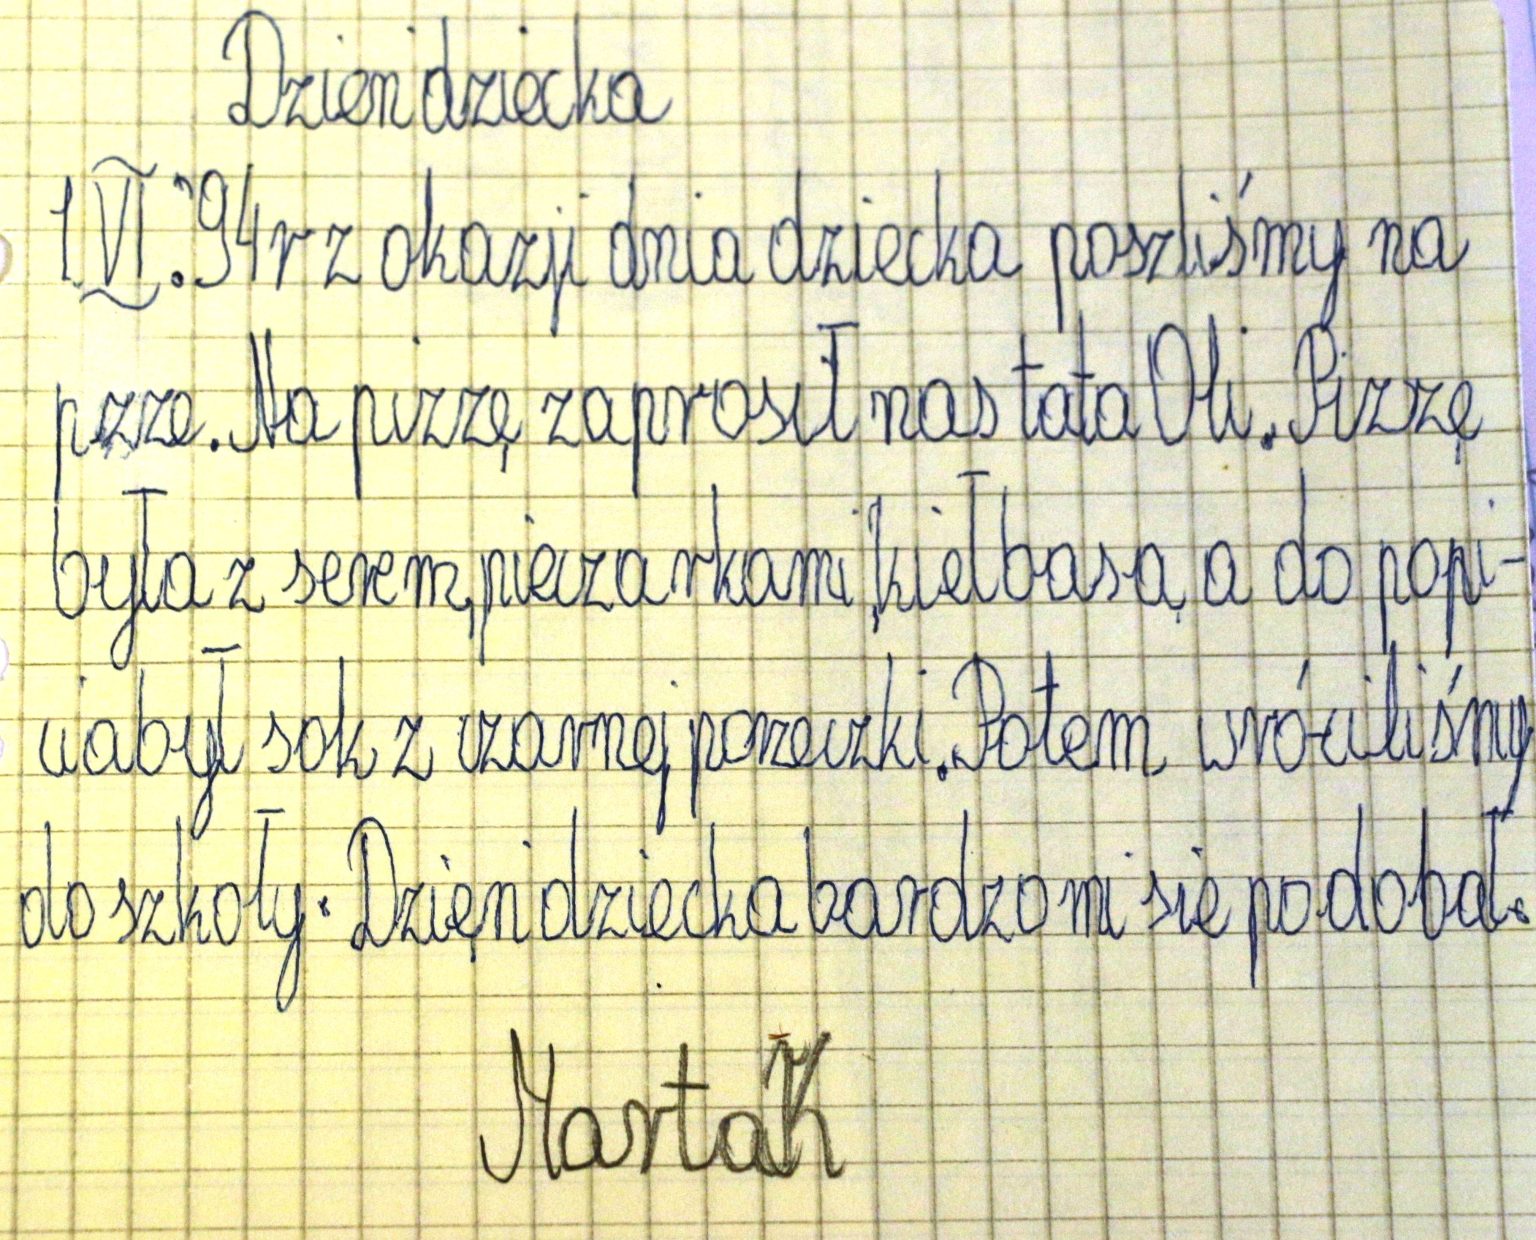 Dzien dziecka
1 VI. '94r z okazji dnia dziecka poszliśmy na
pizze. Na pizzę zaprosił nas tata Oli. Pizzę
była z serem, pieczarkami, kiełbasą, a do popi-
cia był sok z czarnej porzeczki. Potem wróciliśmy
do szkoły. Dzięn dziecka bardzo mi sie podobał.
Marta K